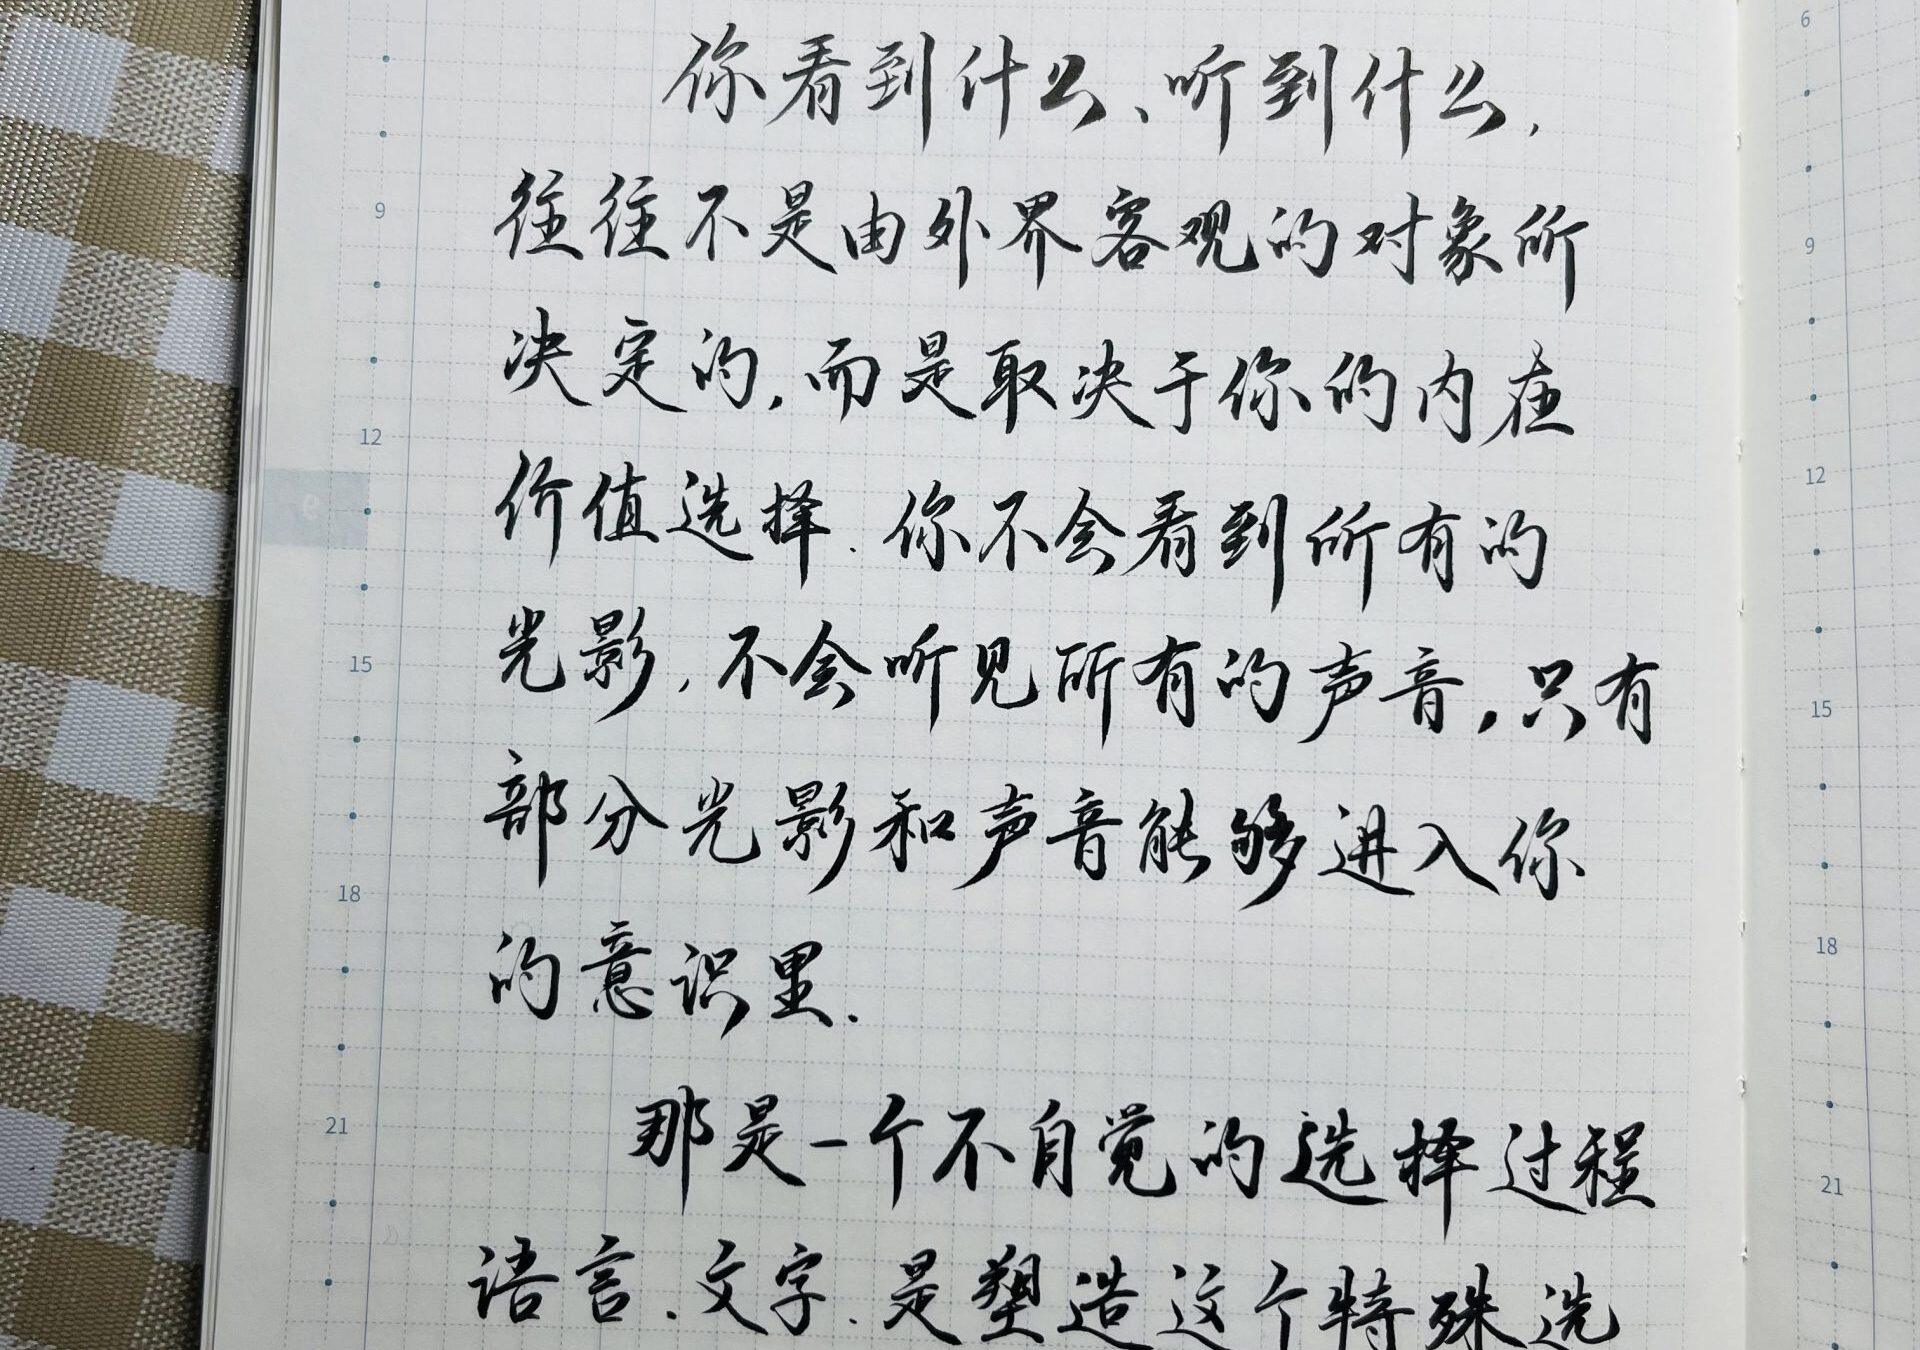 你看到什么、听到什么，
往往不是由外界客观的对象所
决定的，而是取决于你的内在
价值选择．你不会看到所有的
光影，不会听见所有的声音，只有
部分光影和声音能够进入你
的意识里．
那是一个不自觉的选择过程
语言．文字．是塑造这个特殊选
9
12
15
18
21
6
9
12
15
18
21